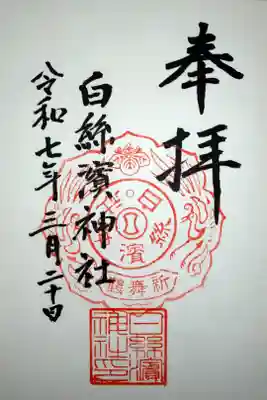 奉拝
白絲濱神社
令和七年三月二十日
白絲濱
新舞鶴
白絲濱
神社印